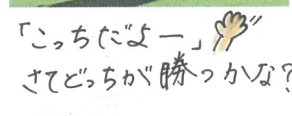 「こっちだよー」
さてどっちが勝つかな?